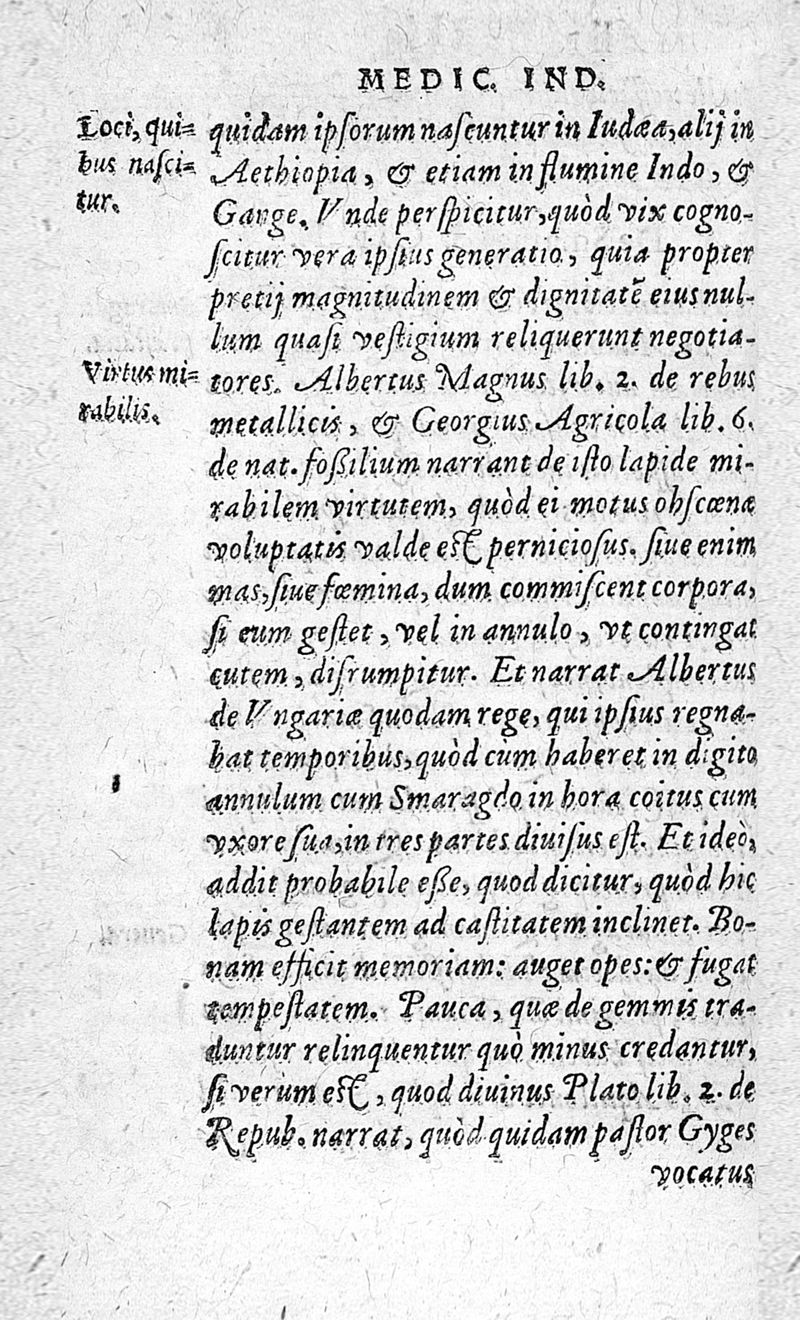 MEDIC. IND.
Loci, qui=
bus nasci=
tur.
quidam ipſorum naſcuntur in Iudæa, alij in
Aethiopia, & etiam in flumine Indo, &
Gange. Vnde perſpicitur, quòd vix cogno-
ſcitur vera ipſius generatio, quia propter
pretij magnitudinem & dignitatẽ eius nul-
lum quaſi veſtigium reliquerunt negotia-
Virtus mi=
rabilis.
tores. Albertus Magnus lib. 2. de rebus
metallicis, & Georgius Agricola lib. 6.
de nat. foßilium narrant de iſto lapide mi-
rabilem virtutem, quòd ei motus obſcœnæ
voluptatis valde eſt pernicioſus. ſiue enim
mas, ſiue fœmina, dum commiſcent corpora,
ſi eum geſtet, vel in annulo, vt contingat
cutem, diſrumpitur. Et narrat Albertus
de Vngariæ quodam rege, qui ipſius regna-
bat temporibus, quòd cùm haberet in digito
annulum cum Smaragdo in hora coitus cum
vxore ſua, in tres partes diuiſus eſt. Et ideò,
addit probabile eße, quod dicitur, quòd hic
lapis geſtantem ad caſtitatem inclinet. Bo-
nam efficit memoriam: auget opes: & fugat
tempeſtatem. Pauca, quæ de gemmis tra-
duntur relinquentur quò minus credantur,
ſi verùm eſt, quod diuinus Plato lib. 2. de
Repub. narrat, quòd quidam paſtor Gyges
vocatus